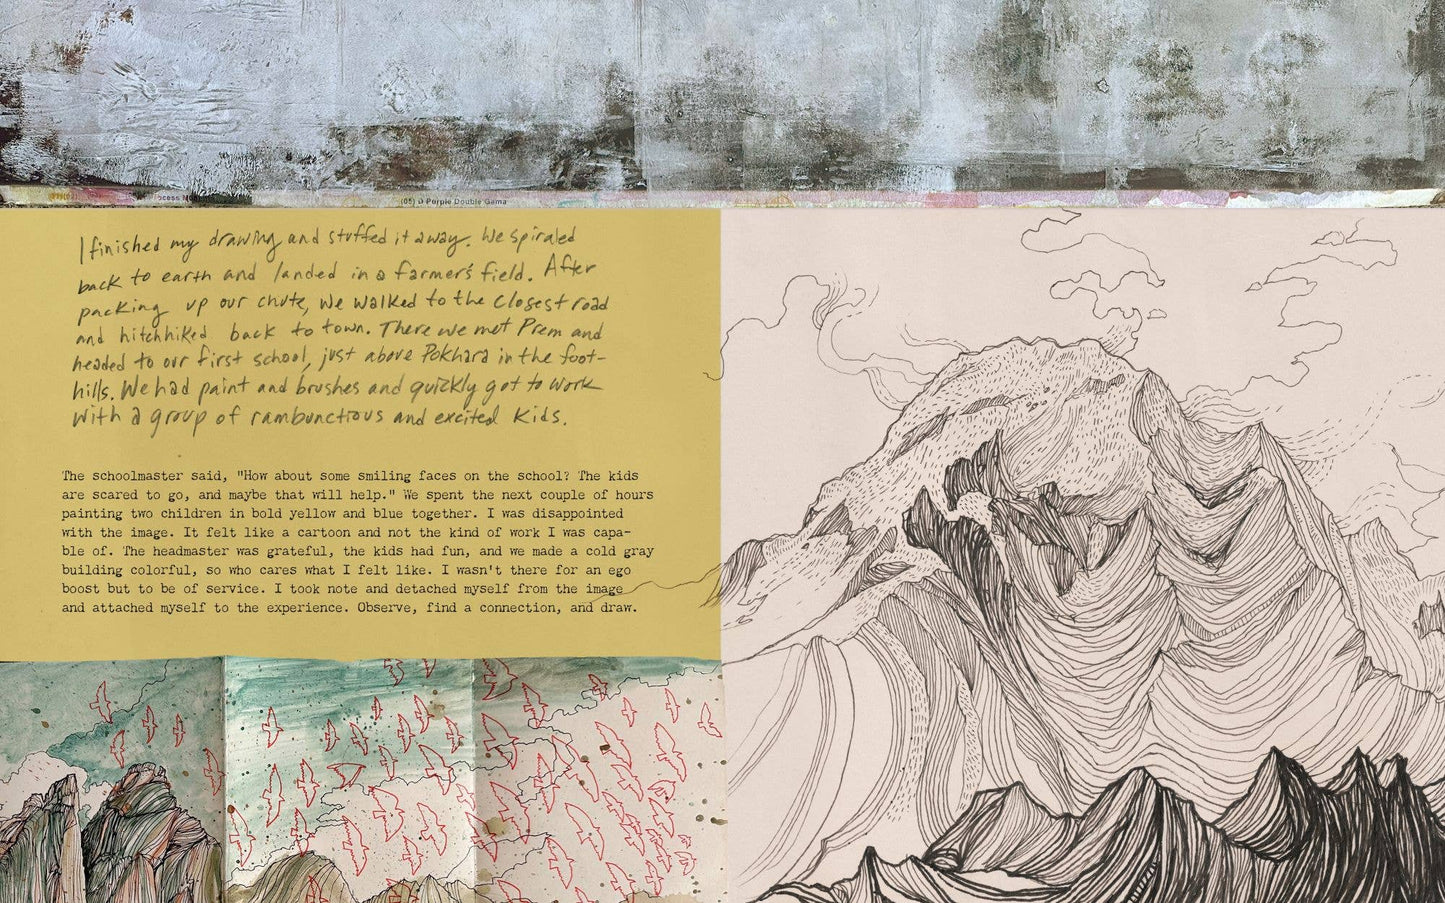 (05) D Purple Double Gama
I finished my drawing and stuffed it away. We spiraled
back to earth and landed in a farmer's field. After
packing up our chute, we walked to the closest road
and hitchhiked back to town. There we met Prem and
headed to our first school, just above Pokhara in the foot-
hills. We had paint and brushes and quickly got to work
with a group of rambunctious and excited kids.
The schoolmaster said, "How about some smiling faces on the school? The kids
are scared to go, and maybe that will help." We spent the next couple of hours
painting two children in bold yellow and blue together. I was disappointed
with the image. It felt like a cartoon and not the kind of work I was capa-
ble of. The headmaster was grateful, the kids had fun, and we made a cold gray
building colorful, so who cares what I felt like. I wasn't there for an ego
boost but to be of service. I took note and detached myself from the image
and attached myself to the experience. Observe, find a connection, and draw.